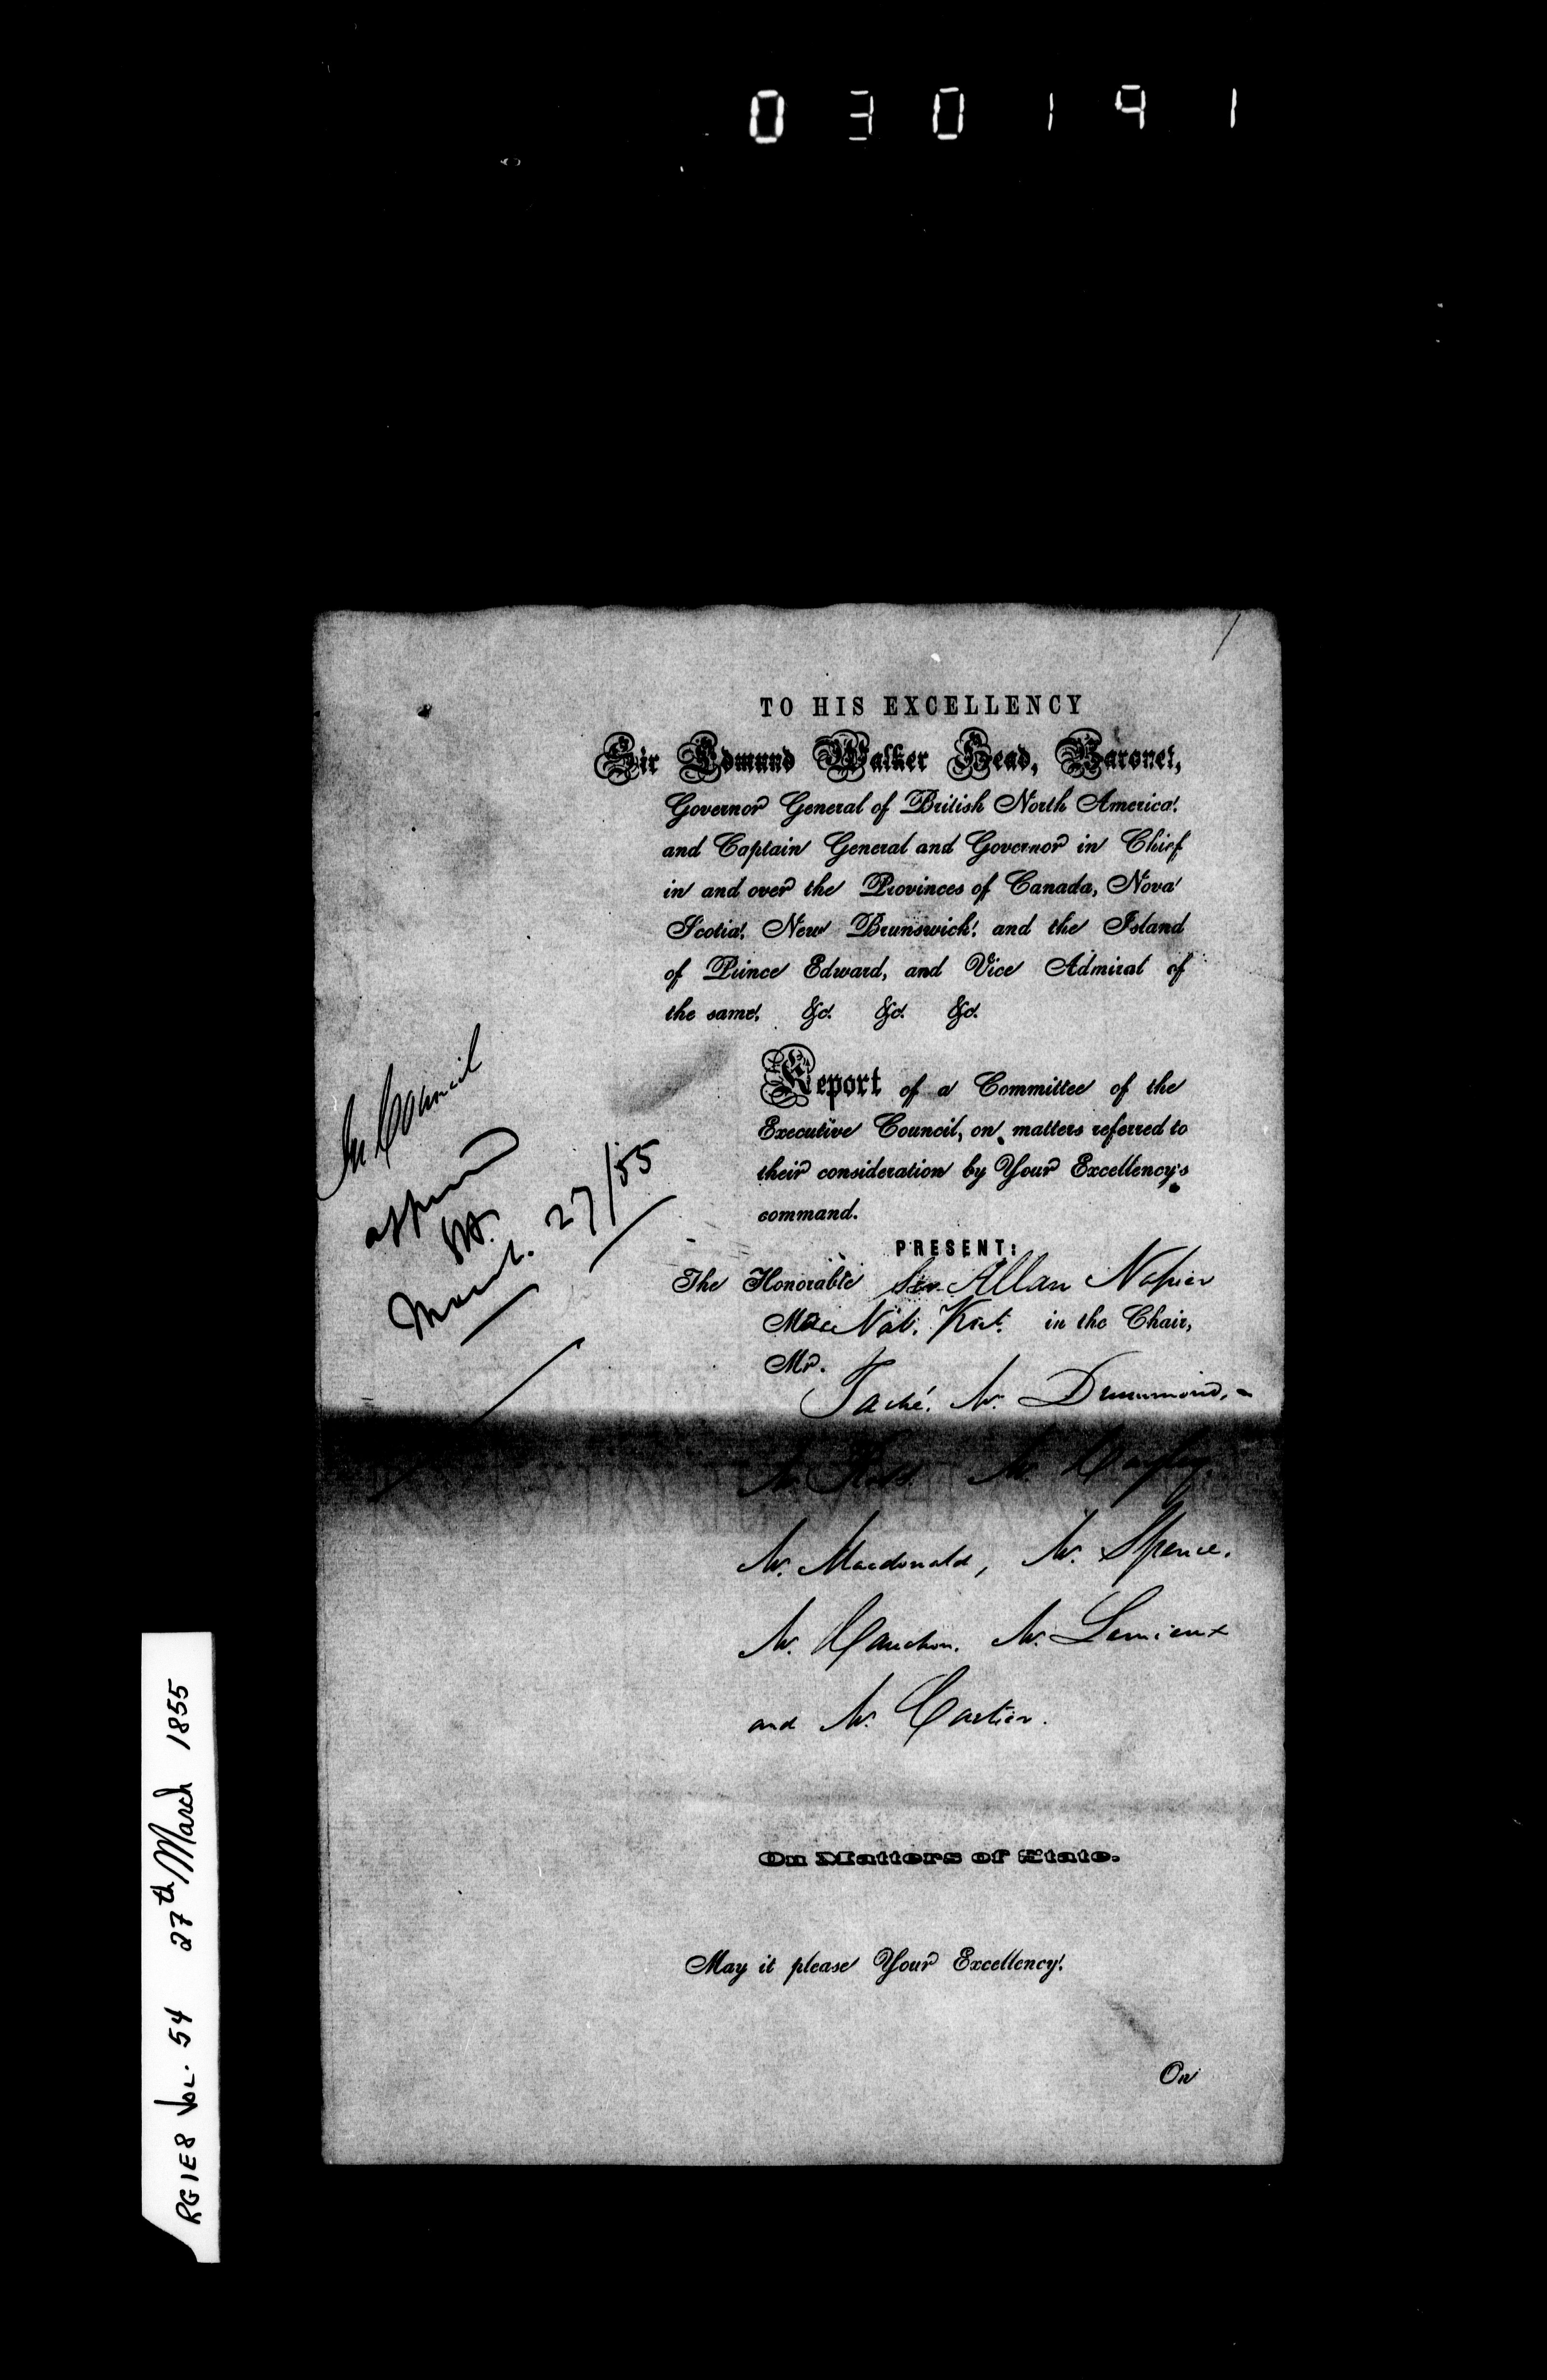 030191
TO HIS EXCELLENCY
Sir Edmund Walker Head, Baronet,
Governor General of British North America,
and Captain General and Governor in Chief
in and over the Provinces of Canada, Nova
Scotia, New Brunswick, and the Island
of Prince Edward, and Vice Admiral of
the same, &c. &c. &c.
Report of a Committee of the
Executive Council, on matters referred to
their consideration by Your Excellency's
command.
In Council
March. 27/55
PRESENT:
The Honorable Sir Allan Napier
MacNab, Knt. in the Chair,
Mr.
Taché, Mr. Drummond,
Mr. Ross Mr. Cayley,
Mr. Macdonald, Mr. Spence,
Mr. Cauchon, Mr. Lemieux
and Mr. Cartier.
On Matters of State.
May it please Your Excellency,
On
RG1E8 Vol. 54 27th March 1855